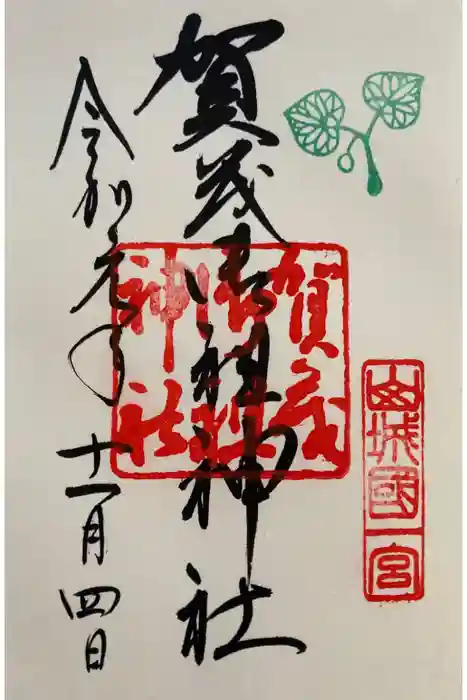 山城國一宮
賀茂御祖神社
賀茂御祖神社
令和元年
十一月四日